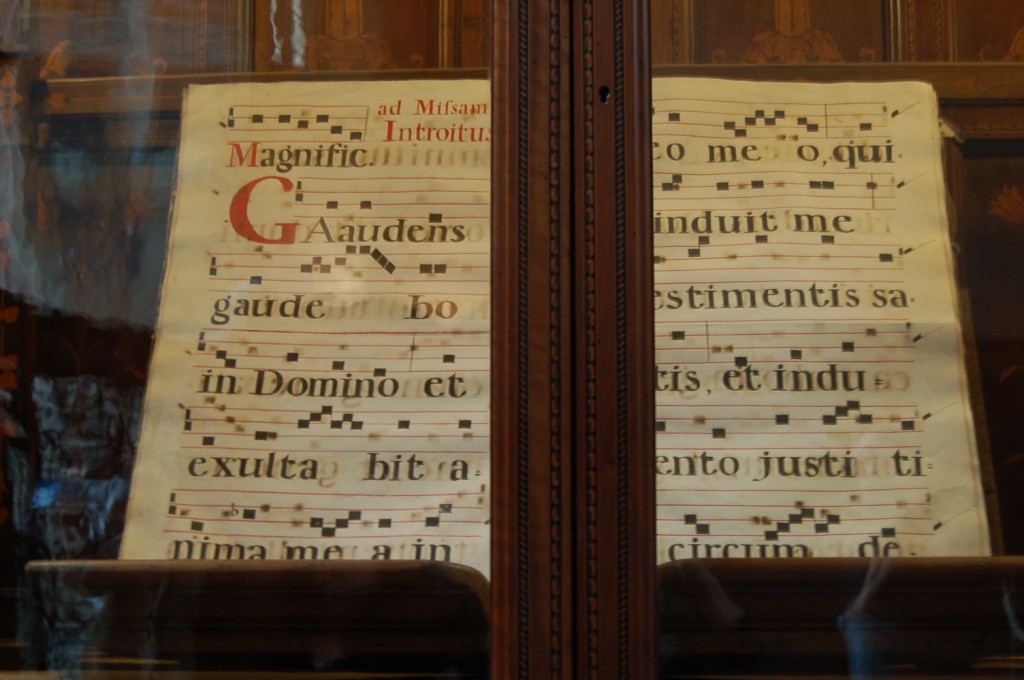 ad Miſsam
Introitus
Magnific.
GAaudens
gaude bo
in Domino et
exulta bit a=
nima me a in
eo me o, qui
induit me
estimentis sa-
tis, et indu=
ento justi ti=
circum de-